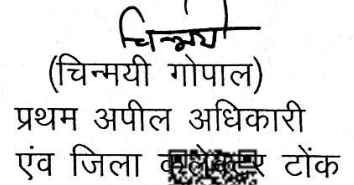 चिन्मयी
(चिन्मयी गोपाल)
प्रथम अपील अधिकारी
एंव जिला कलेक्टर टोंक